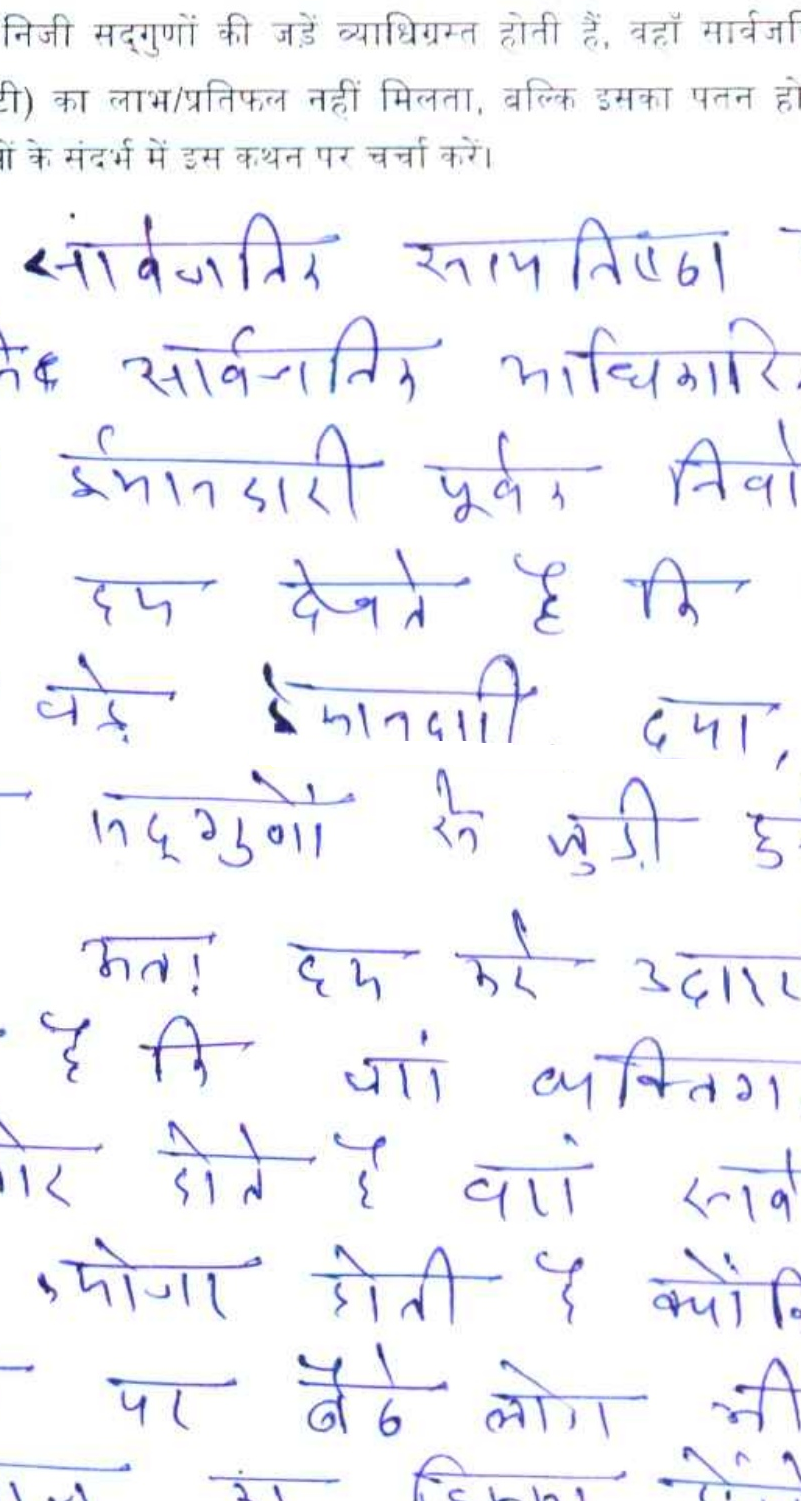 निजी सद्‌गुणों की जड़ें व्याधिग्रस्त होती हैं, वहाँ सार्वजनि
टी) का लाभ/प्रतिफल नहीं मिलता, बल्कि इसका पतन हो
ों के संदर्भ में इस कथन पर चर्चा करें।
सार्वजनिक सत्यनिष्ठा
सार्वजनिक अधिकारि
ईमानदारी पूर्वक निर्वा
हम देखते है कि
जड़े ईमानदारी दया,
सद्‌गुणों से जुड़ी हु
अतः हम कई उदाहर
है कि जहां व्यक्तिग
ोर होते है वहां सार्व
कमजोर होती है क्योंकि
पर बैठे लोग भी